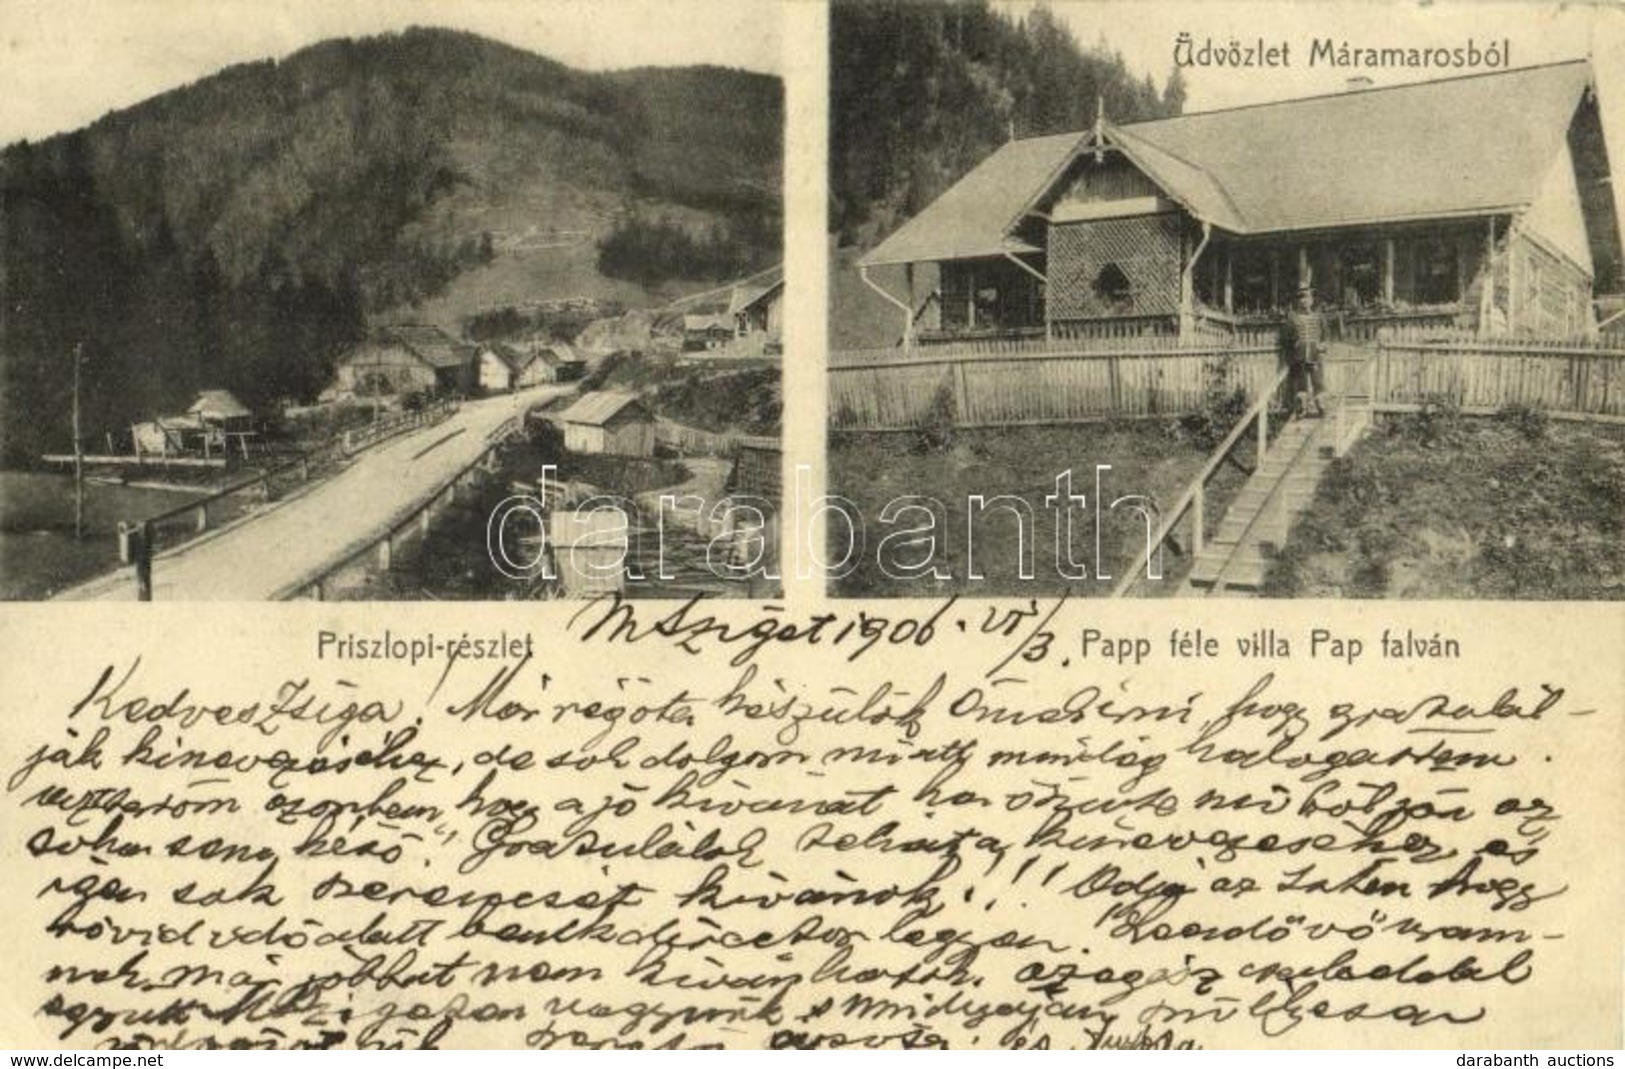 Üdvözlet Máramarosból
darabanth
Priszlopi-részlet
MSziget 1906. VI/3.
Papp féle villa Pap falván
Kedves Zsiga! Már régóta készülök Önnek írni, hogy gratulál-
ják kinevezéséhez, de sok dolgom miatt mindég halogattam.
azonban, hogy a jó kívánat ha őszinte szívből jön az
soha sem késő." Gratulálok tehát a kinevezéséhez, és
igen sok szerencsét kívánok!!! Adja az Isten hogy
rövid idő alatt bankdirector legyen! Leendő vő uram-
nak már jobbat nem kívánhatok. az egész családdal
együtt MSzigeten vagyunk s
és
darabanth auctions
www.delcampe.net